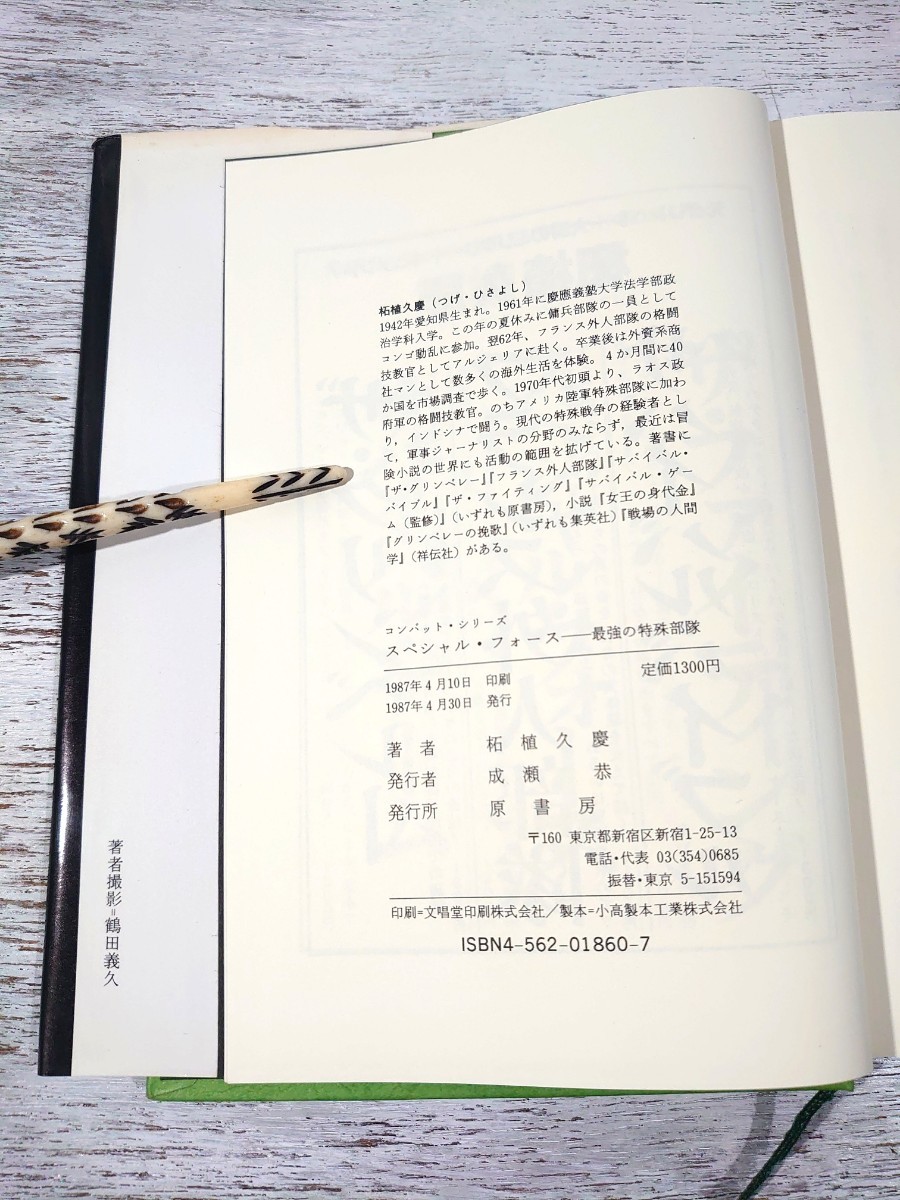 柘植久慶（つげ・ひさよし）
1942年愛知県生まれ。1961年に慶應義塾大学法学部政
治学科入学。この年の夏休みに傭兵部隊の一員として
コンゴ動乱に参加。翌62年、フランス外人部隊の格闘
技教官としてアルジェリアに赴く。卒業後は外資系商
社マンとして数多くの海外生活を体験。4か月間に40
か国を市場調査で歩く。1970年代初頭より、ラオス政
府軍の格闘技教官。のちアメリカ陸軍特殊部隊に加わ
り，インドシナで闘う。現代の特殊戦争の経験者とし
て，軍事ジャーナリストの分野のみならず，最近は冒
険小説の世界にも活動の範囲を拡げている。著書に
『ザ・グリンベレー』『フランス外人部隊』『サバイバル・
バイブル』『ザ・ファイティング』『サバイバル・ゲー
ム（監修）』（いずれも原書房），小説『女王の身代金』
『グリンベレーの挽歌』（いずれも集英社）『戦場の人間
学』（祥伝社）がある。
コンバット・シリーズ
スペシャル・フォース――最強の特殊部隊
定価1300円
1987年4月10日　印刷
1987年4月30日　発行
著者　柘植久慶
発行者　成瀬　恭
発行所　原書房
〒160 東京都新宿区新宿1-25-13
電話・代表 03(354)0685
振替・東京 5-151594
印刷=文唱堂印刷株式会社／製本=小高製本工業株式会社
ISBN4-562-01860-7
著者撮影=鶴田義久